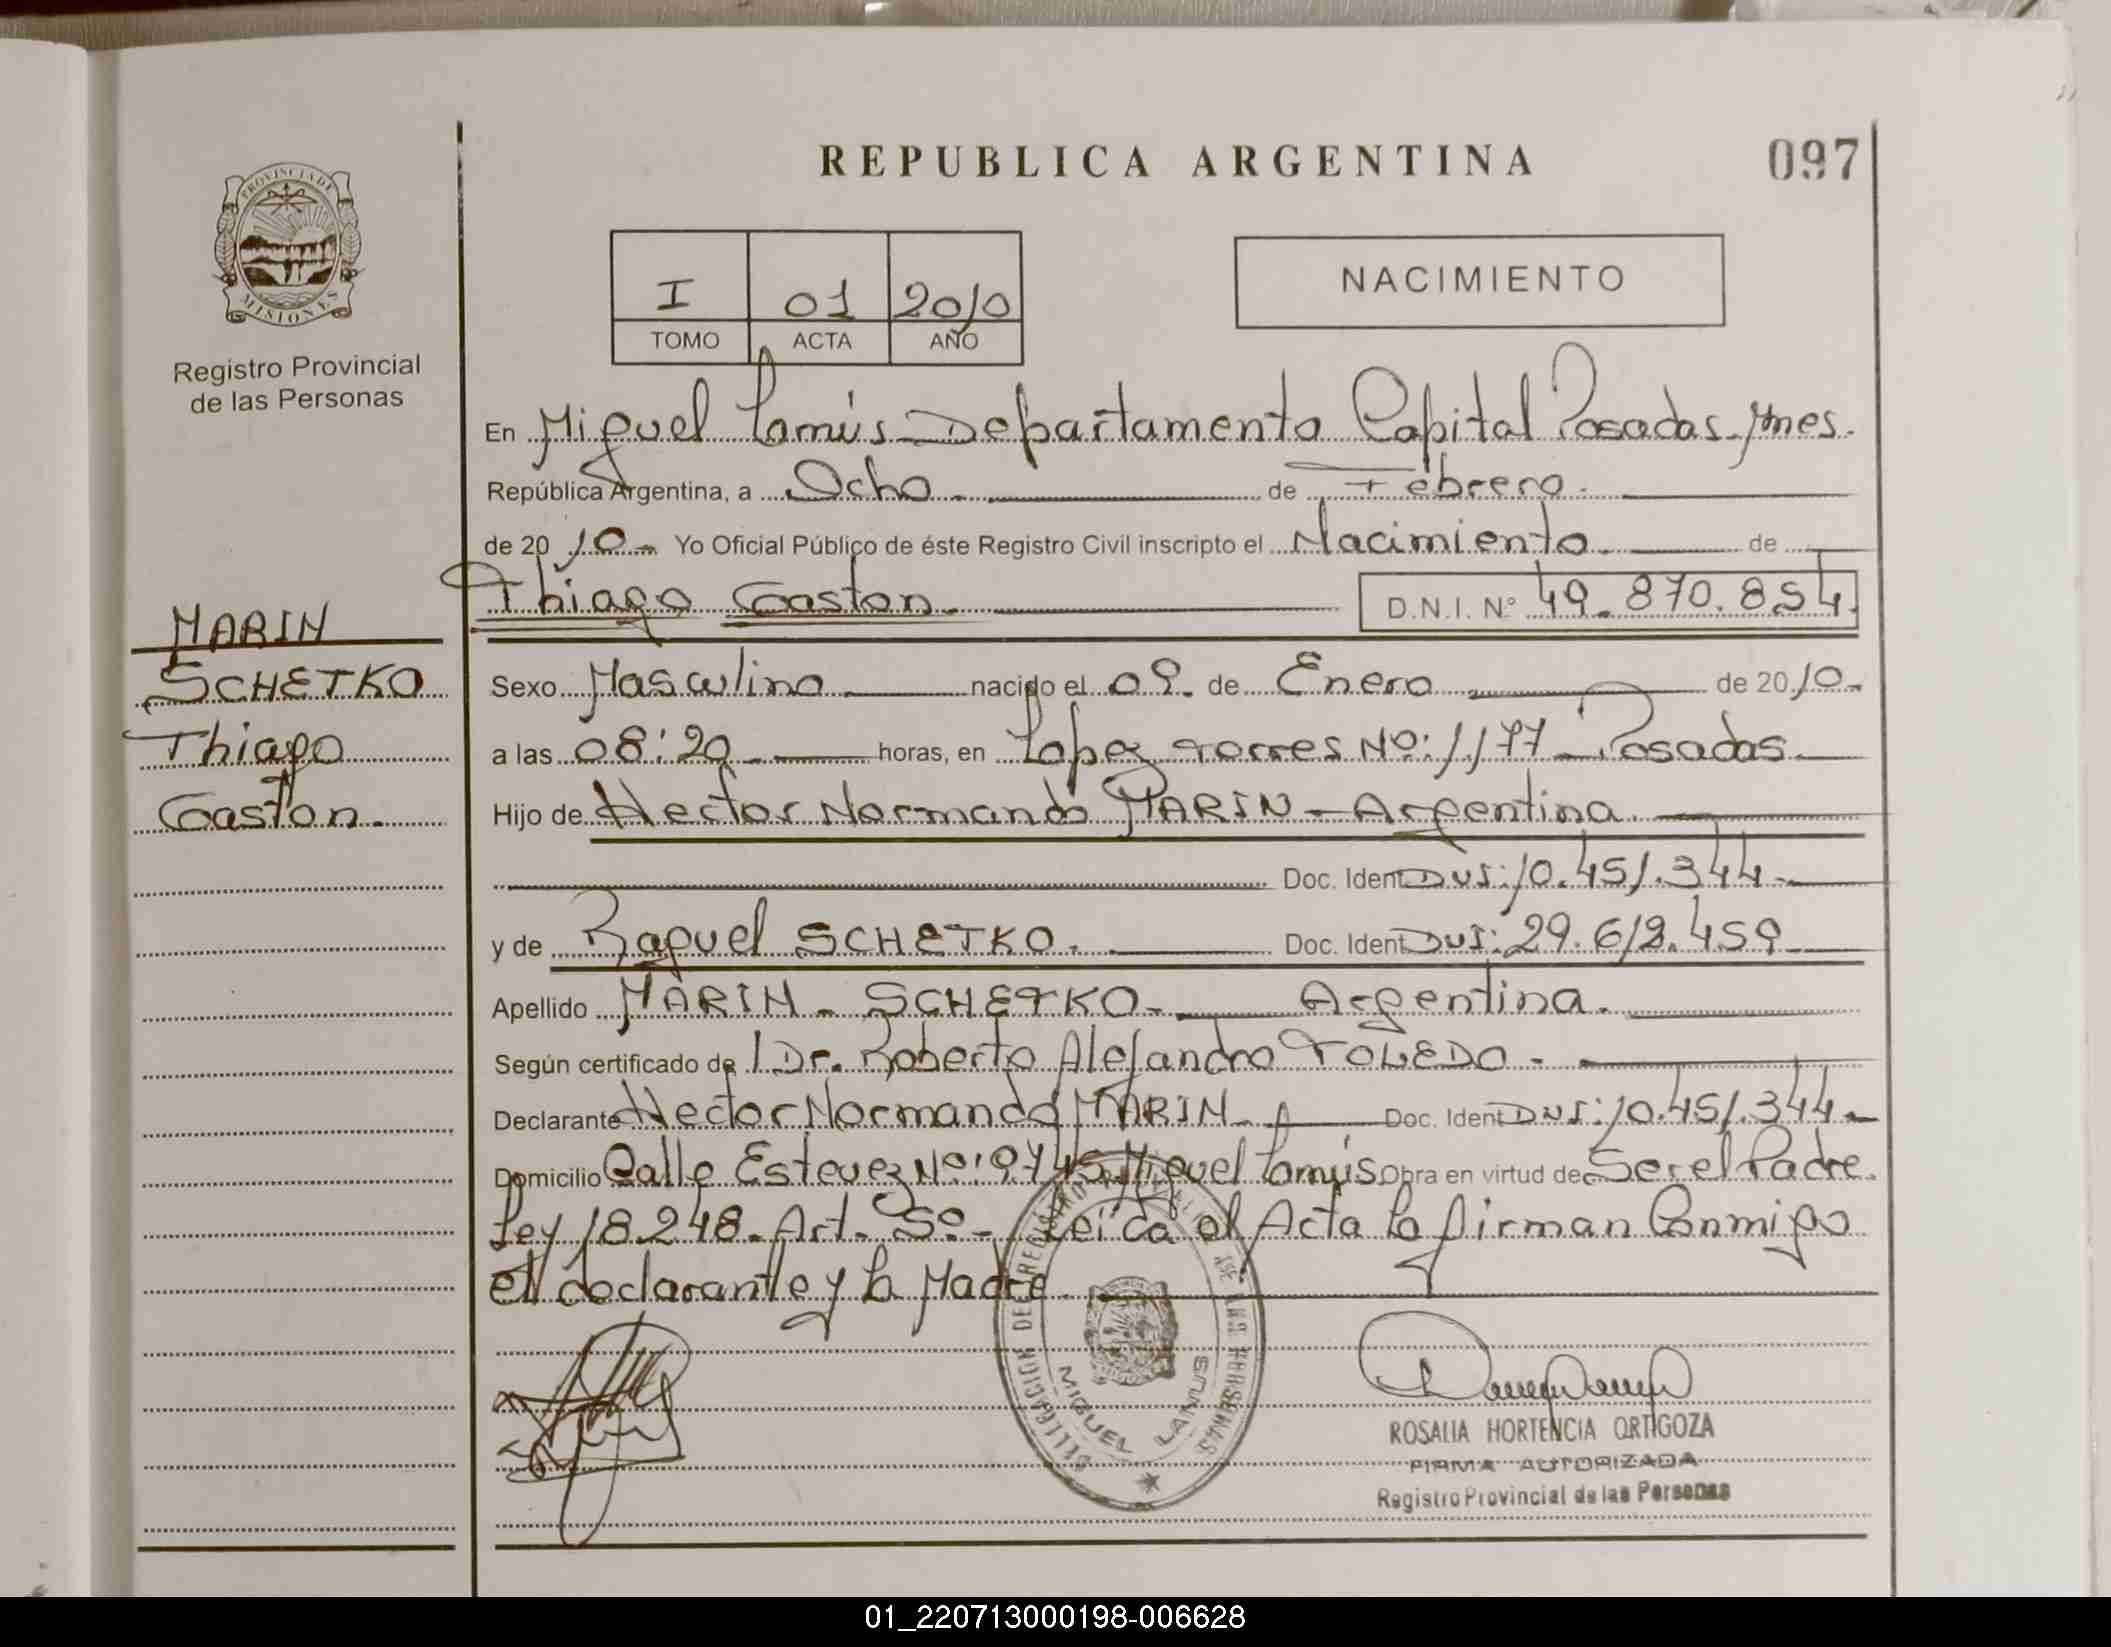 REPUBLICA ARGENTINA
097
PROVINCIA DE
MISIONES
Registro Provincial
de las Personas
I 01 2010
TOMO ACTA AÑO
NACIMIENTO
En Miguel Lanús Departamento Capital Posadas. Mnes.
República Argentina, a Ocho. de Febrero.
de 20 10- Yo Oficial Público de éste Registro Civil inscripto el Nacimiento. de
Thiago Gaston. D.N.I. Nº 49.870.854.
MARIN
SCHETKO
Thiago
Gaston.
Sexo Masculino nacido el 09. de Enero de 20 10-
a las 08:20 horas, en Lopez Torres Nº: 1177 - Posadas.
Hijo de Hector Normando MARIN - Argentina.
Doc. Ident DNI: 10.451.344-
y de Raquel SCHETKO. Doc. Ident DNI: 29.612.459
Apellido MARIN - SCHETKO- Argentina.
Según certificado de l Dr. Roberto Alejandro TOLEDO-
Declarante Hector Normando MARIN. Doc. Ident DNI: 10.451.344-
Domicilio Calle Estevez Nº: 9745 Miguel Lanús Obra en virtud de Ser el Padre.
Ley 18.248. Art. 5º- Leida el Acta la firman Conmigo
el declarante y la Madre.
MIGUEL LANUS
ROSALIA HORTENCIA ORTIGOZA
FIRMA AUTORIZADA
Registro Provincial de las Personas
01_220713000198-006628